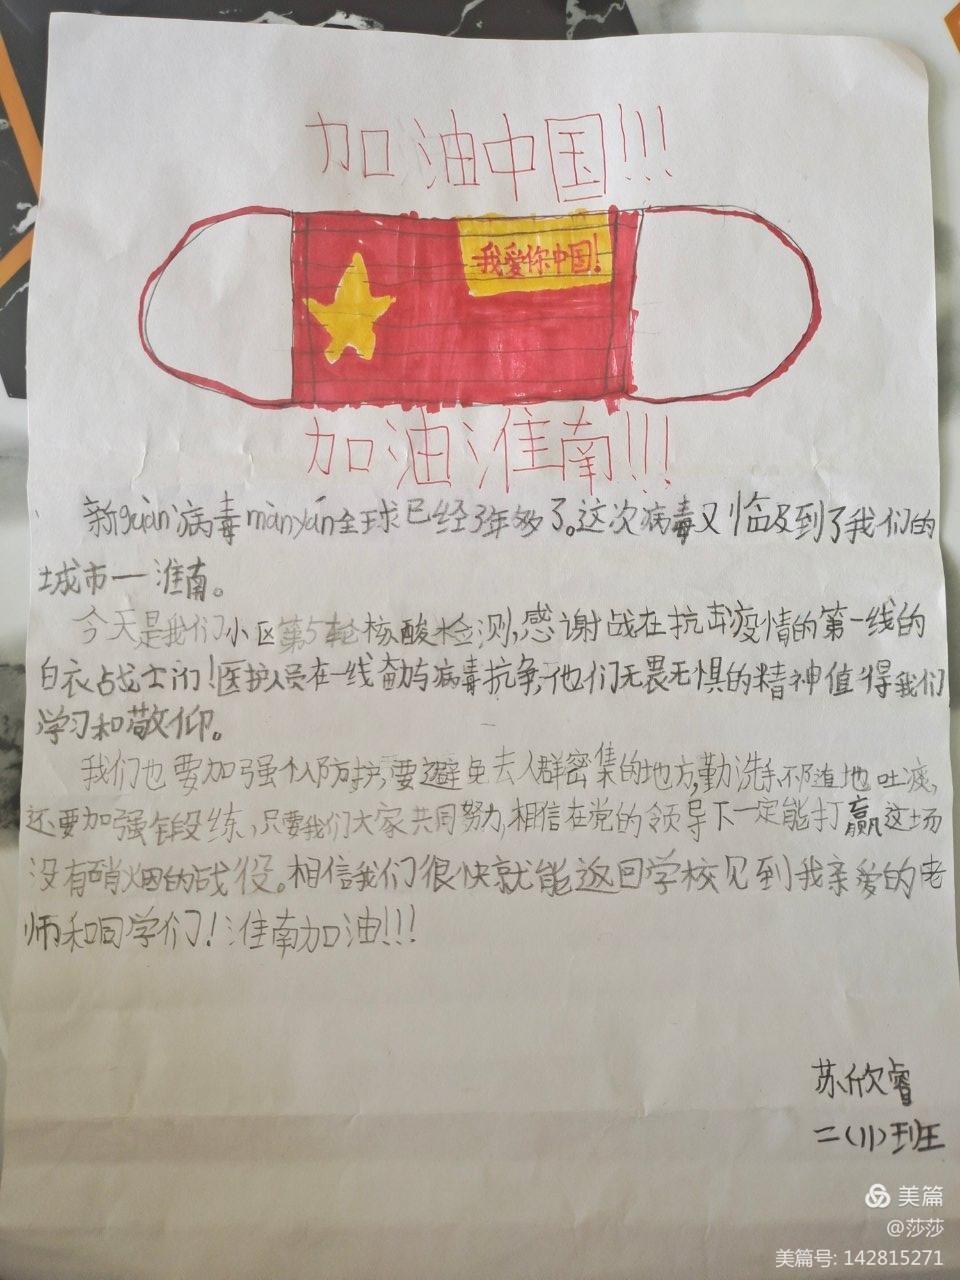 加油中国!!!
我爱你中国!
加油淮南!!!
新guàn病毒màn yán全球已经3年多了。这次病毒又临及到了我们的
城市一淮南。
今天是我们小区第5轮核酸检测,感谢战在抗击疫情的第一线的
白衣战士们!医护人员在一线奋与病毒抗争,他们无畏无惧的精神值得我们
学习和敬仰。
我们也要加强个人防护,要避免去人群密集的地方,勤洗手,不随地吐痰,
还要加强锻练,只要我们大家共同努力,相信在党的领导下一定能打赢这场
没有硝烟的战役。相信我们很快就能返回学校见到我亲爱的老
师和同学们!淮南加油!!!
苏欣睿
二(11)班
美篇
@莎莎
美篇号: 142815271